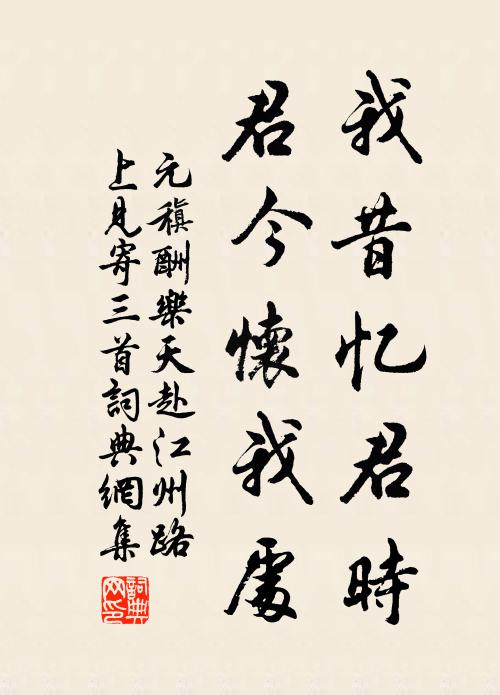 我昔忆君時
君今懷我處
元稹酬樂天赴江州路
上見寄三首詞典網集
詞典
网印